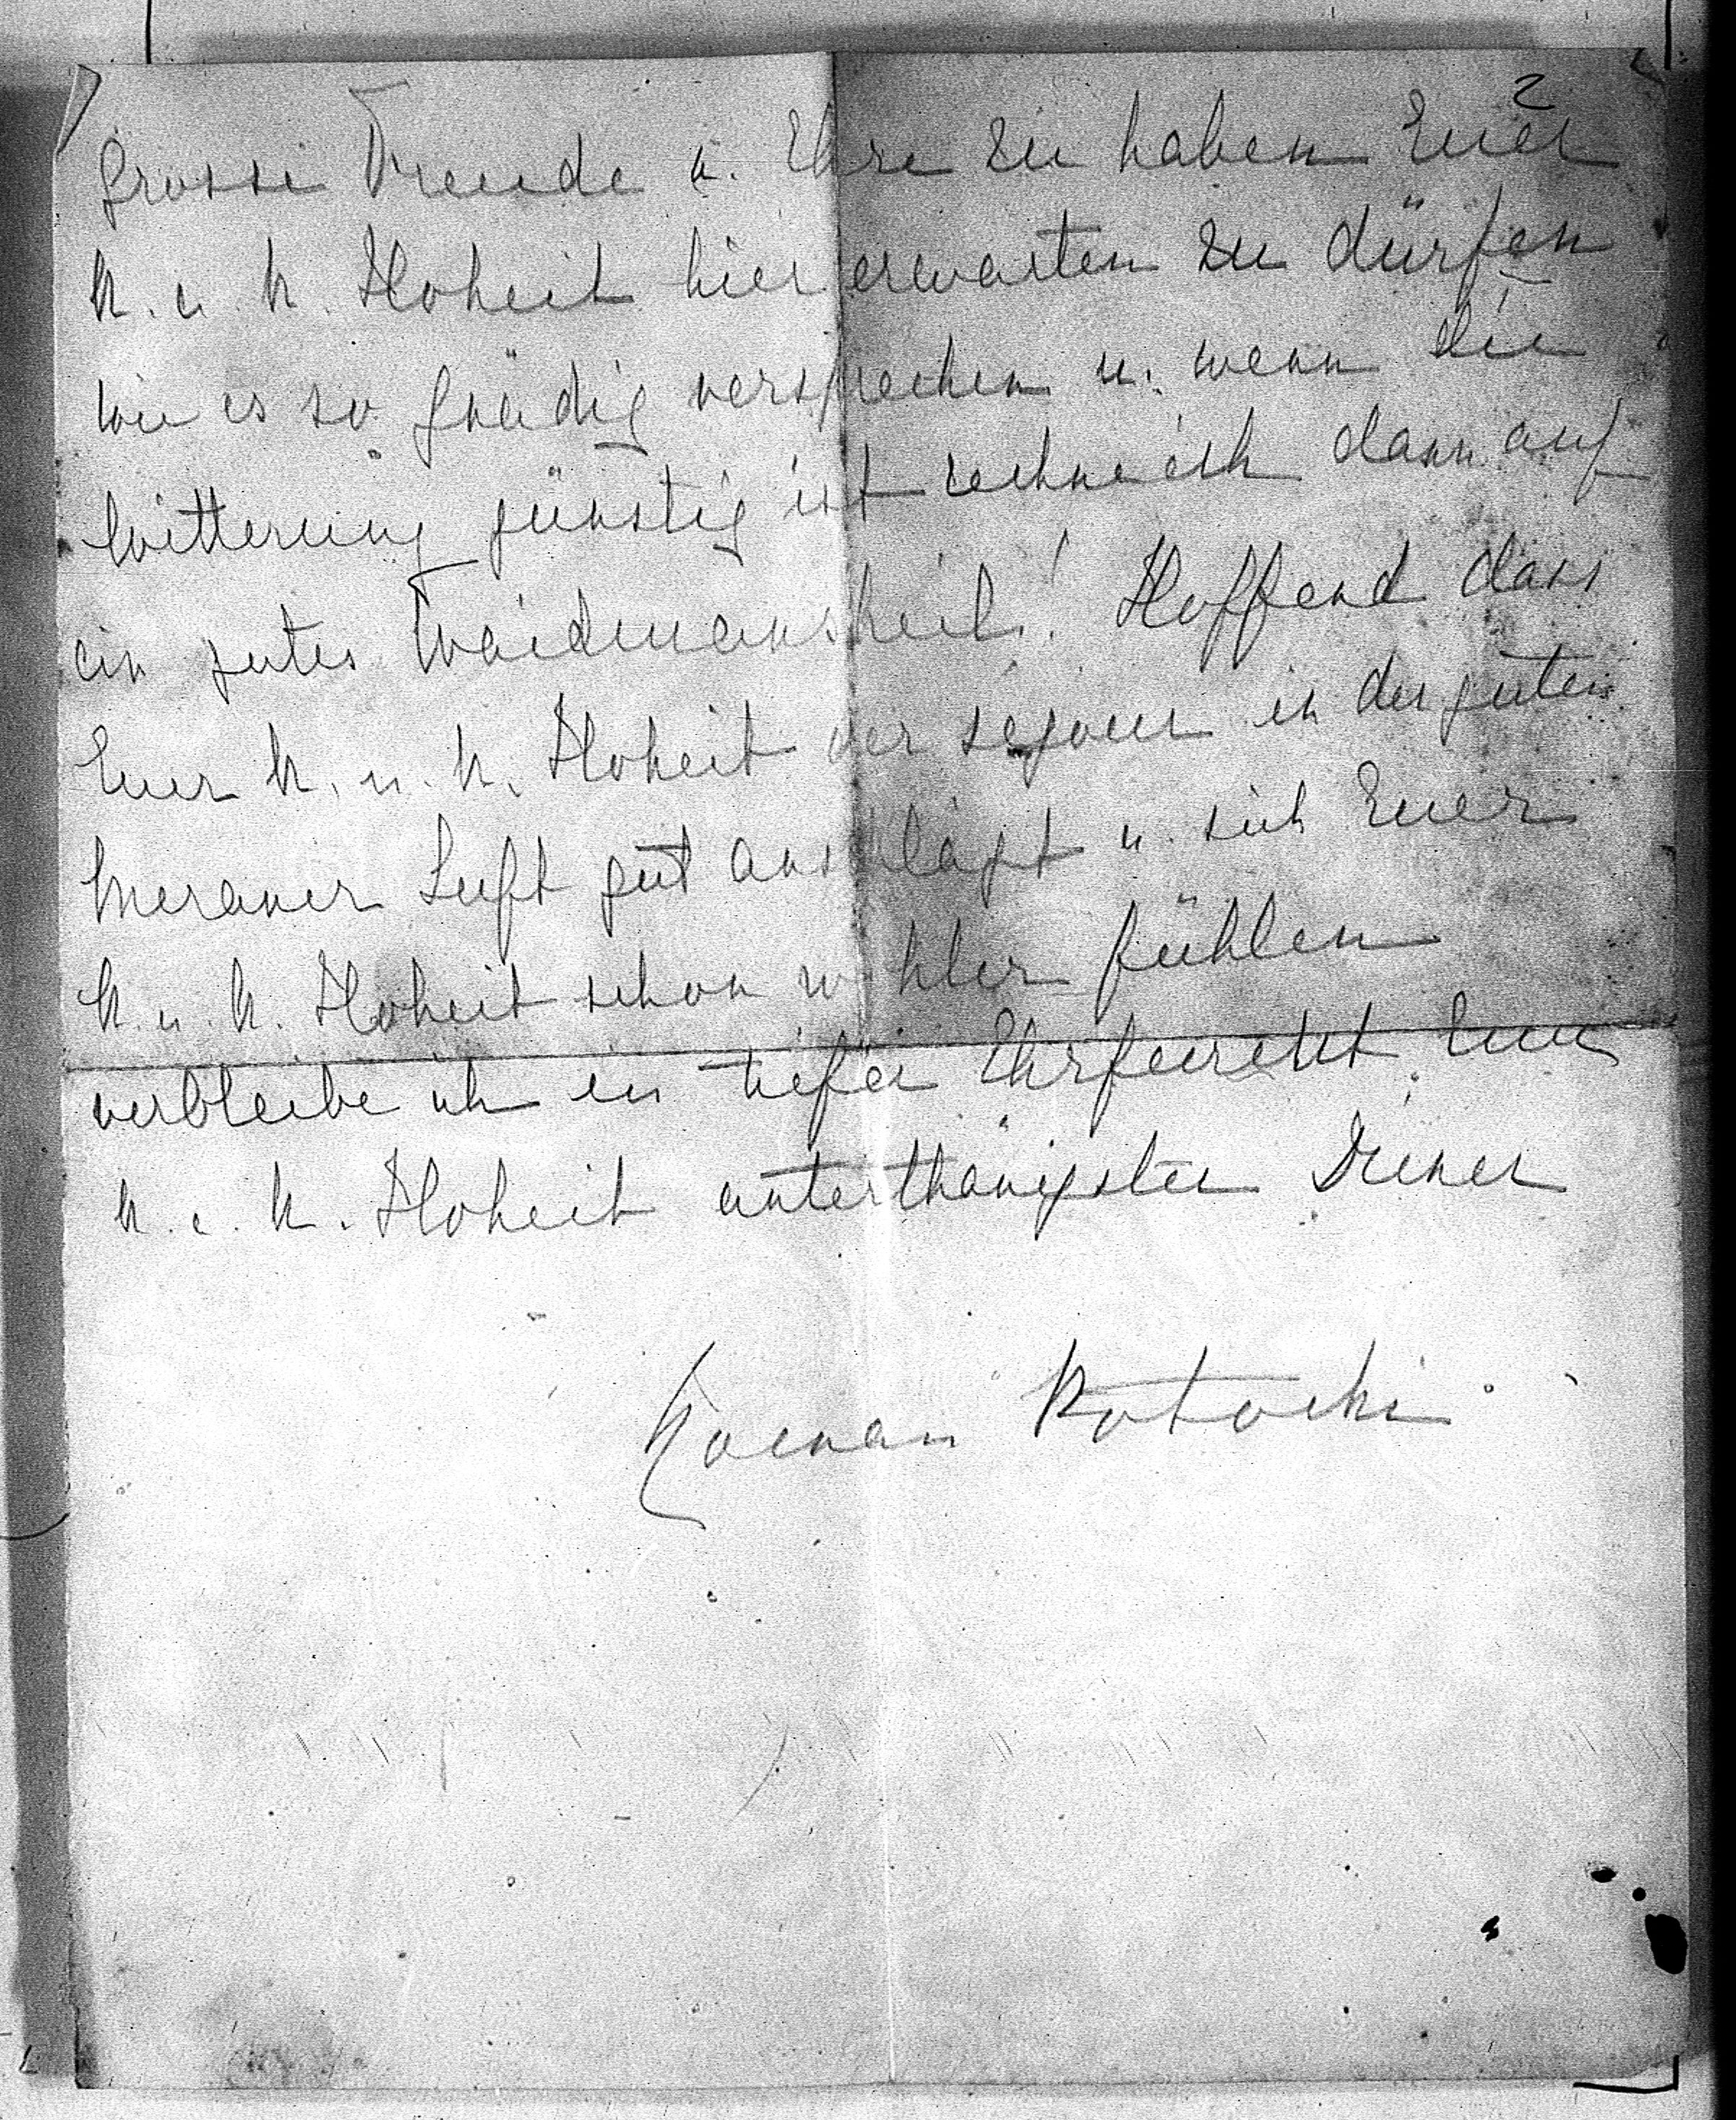 2
grosse Freude u. Ehre zu haben Euer
k. u. k. Hoheit hier erwarten zu dürfen
wie es so gnädig versprechen u. wenn die
Witterung günstig ist rechne ich dann auf
ein gutes Waidmansheil! Hoffend dass
Euer k. u. k. Hoheit der séjour in der guten
Meraner Luft gut anschlägt u. sich Euer
k. u. k. Hoheit schon wohler fühlen
verbleibe ich in tiefer Ehrfurcht Euer
k. u. k. Hoheit unterthänigster Diener
Roman Potocki